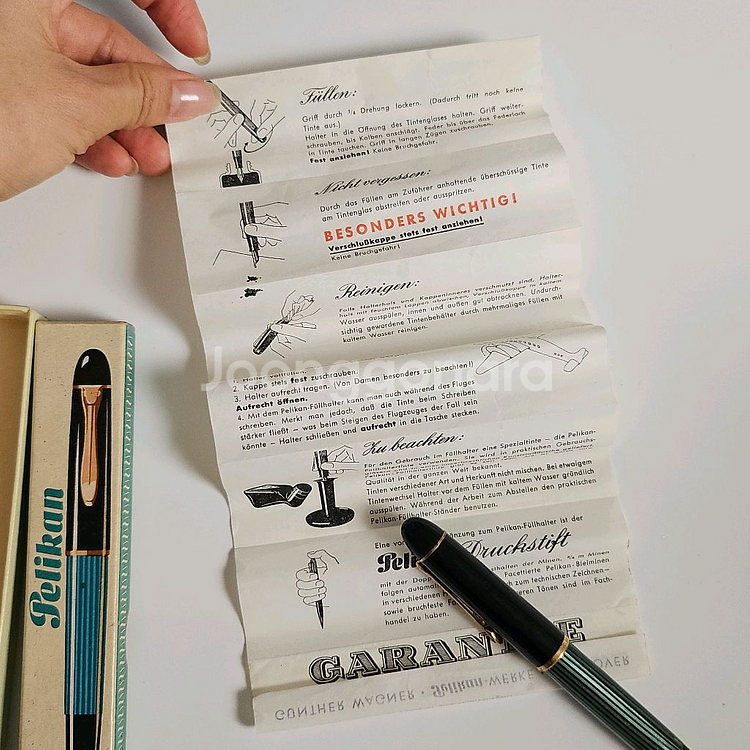 Füllen:
Griff durch ¼ Drehung lockern. (Dadurch tritt noch keine
Tinte aus.)
Halter in die Öffnung des Tintenglases halten. Griff weiter-
schrauben, bis Kolben anschlägt. Feder bis über das Federloch
in Tinte tauchen. Griff in langen Zügen zuschrauben.
Fest anziehen! Keine Bruchgefahr.
Nicht vergessen:
Durch das Füllen am Zuführer anhaftende überschüssige Tinte
am Tintenglas abstreifen oder ausspritzen.
BESONDERS WICHTIG!
Verschlußkappe stets fest anziehen!
Keine Bruchgefahr!
Reinigen:
Falls Halterhals und Kappeninneres verschmutzt sind, Halter-
hals mit feuchtem Lappen abwischen, Verschlußkappe in kaltem
Wasser ausspülen, innen und außen gut abtrocknen. Undurch-
sichtig gewordene Tintenbehälter durch mehrmaliges Füllen mit
kaltem Wasser reinigen.
1. Halter vollfüllen.
2. Kappe stets fest zuschrauben.
3. Halter aufrecht tragen. (Von Damen besonders zu beachten!)
Aufrecht öffnen.
4. Mit dem Pelikan-Füllhalter kann man auch während des Fluges
schreiben. Merkt man jedoch, daß die Tinte beim Schreiben
stärker fließt – was beim Steigen des Flugzeuges der Fall sein
könnte – Halter schließen und aufrecht in die Tasche stecken.
Joonggonara
Zu beachten:
Für den Gebrauch im Füllhalter eine Spezialtinte – die Pelikan-
Füllhaltertinte verwenden. Sie wird in praktischen Gebrauchs-
Qualität in der ganzen Welt bekannt.
Tinten verschiedener Art und Herkunft nicht mischen. Bei etwaigem
Tintenwechsel Halter vor dem Füllen mit kaltem Wasser gründlich
ausspülen. Während der Arbeit zum Abstellen den praktischen
Pelikan-Füllhalter-Ständer benutzen.
Eine vor änzung zum Pelikan-Füllhalter ist der
Peli Druckstift
mit der Dopp sthalten der Minen. Minen
folgen automa Facettierte Pelikan-Bleiminen
in verschiedenen zum technischen Zeichnen–
sowie bruchfeste Fa eren Tönen sind im Fach-
handel zu haben.
GARAN IE
GÜNTHER WAGNER · Pelikan-WERKE OVER
Pelikan